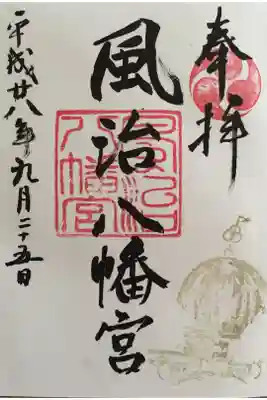 奉拝
風治八幡宮
風治八幡宮
平成廿八年九月二十五日